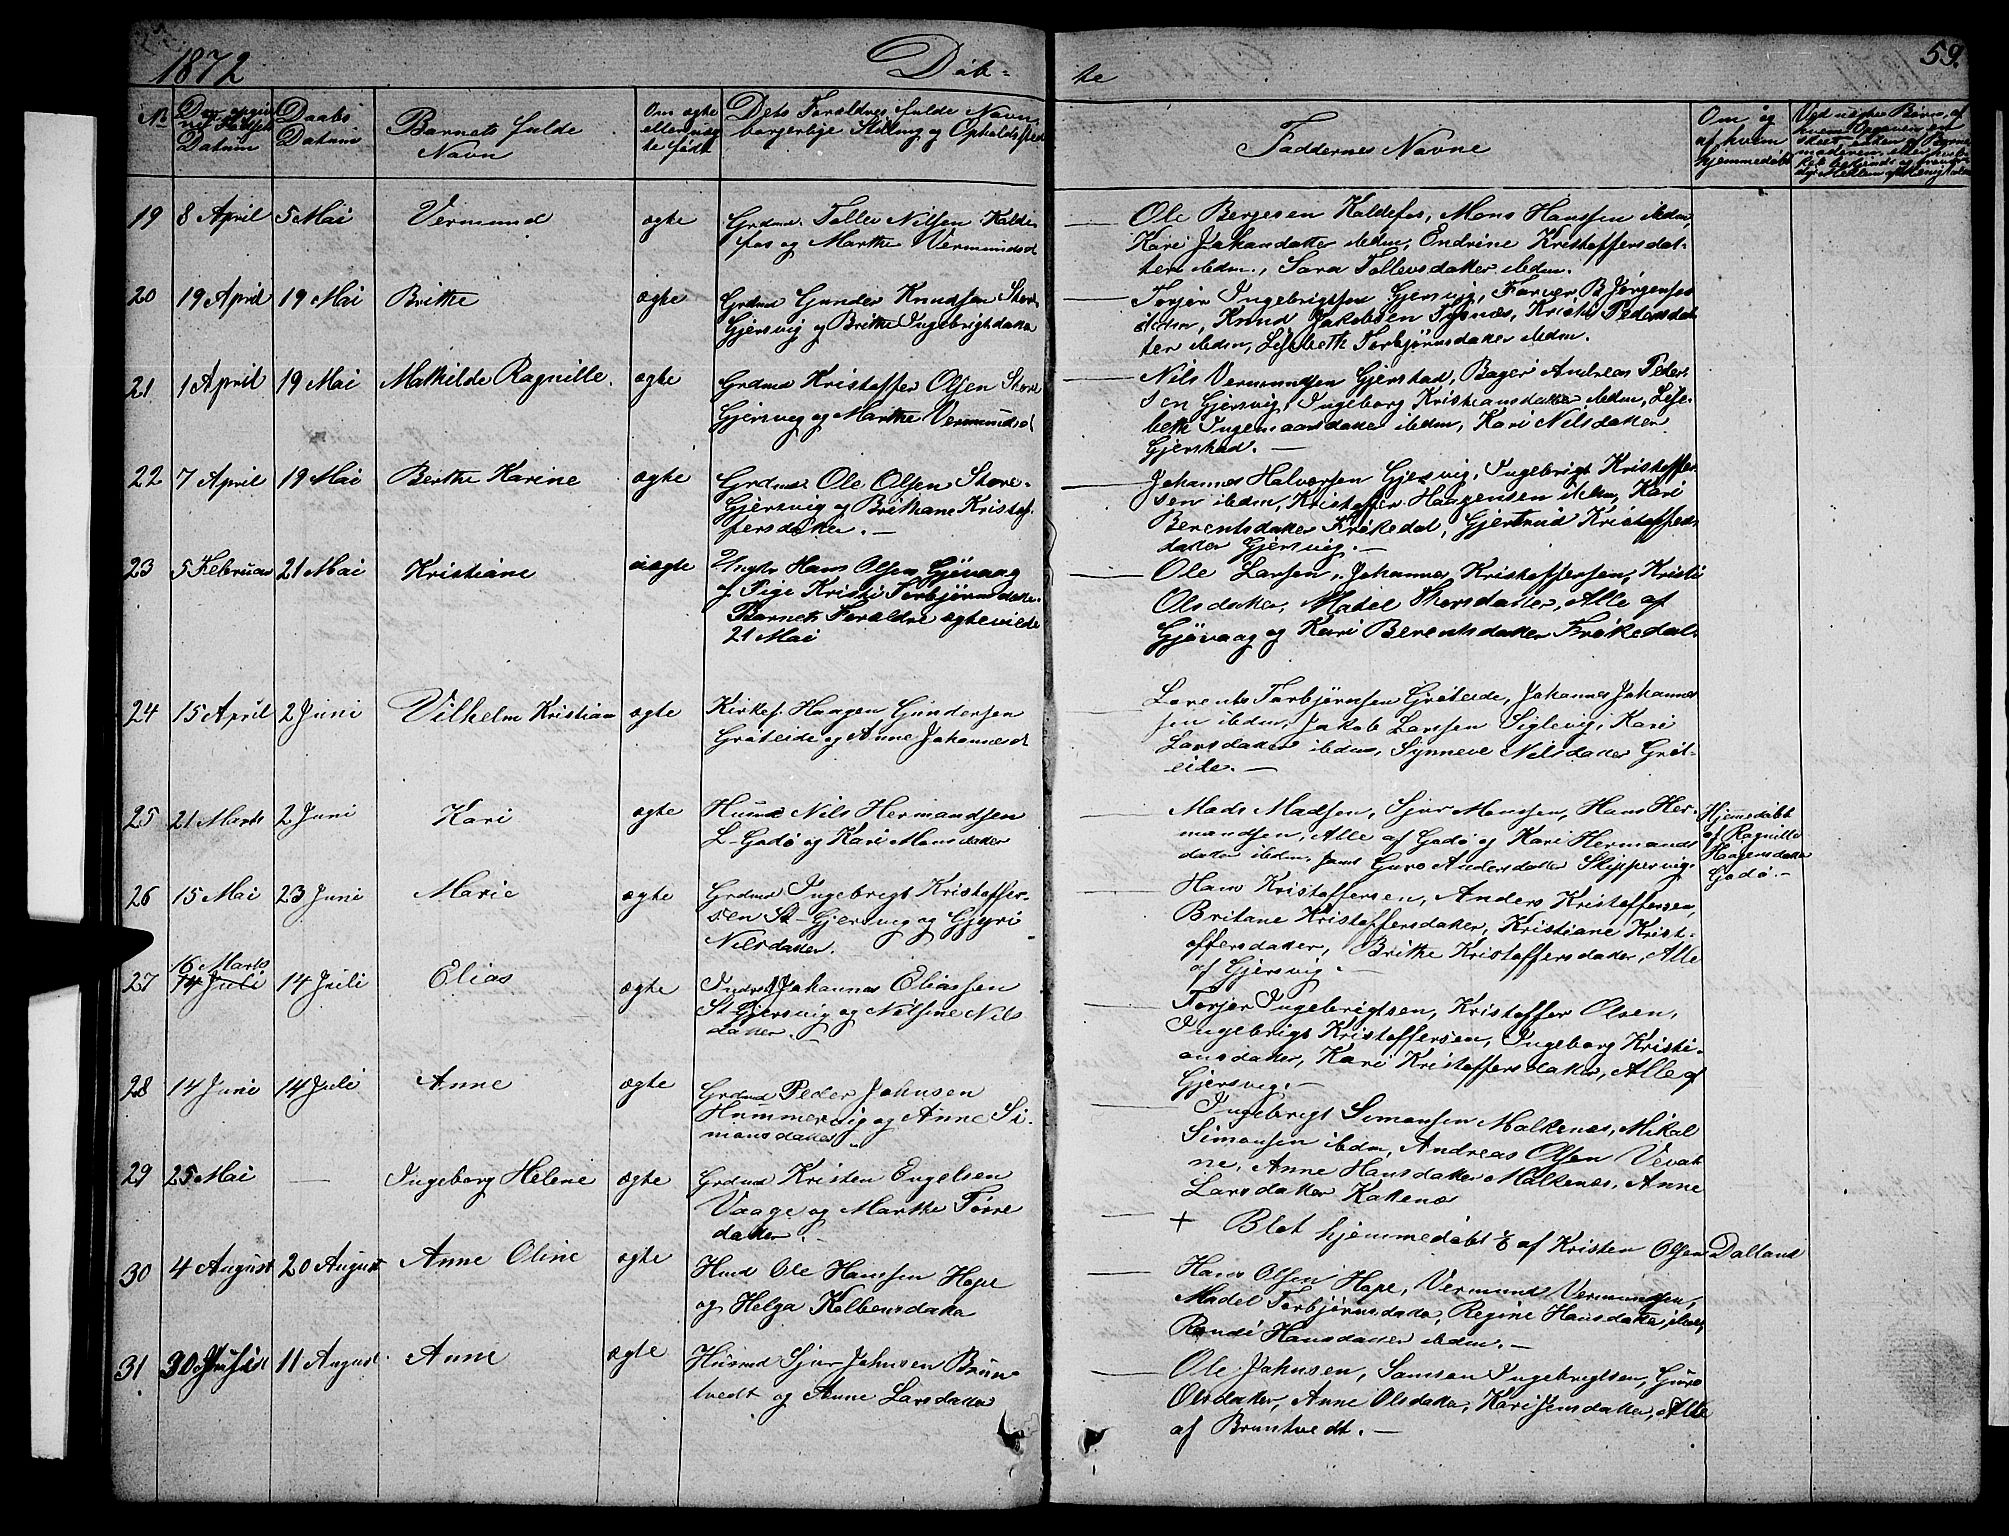 1872
Døb-
te
59.
No
Datum
Daabs
Datum
Barnets fulde
Navn
Om ægte
eller uæg
te født
Dets Forældres fulde Navn,
borgerlige Stilling og Opholds Sted
Faddernes Navne
Om og
af hvem
hjemmedøbt
19 8 April 5 Mai Vermund ægte Grdmd. Tollev Nilsen Kalde
fos og Marthe Vermundsd
Ole Bergesen Kaldefos, Mons Hanssen ibdm,
Kari Johansdatter ibdm, Endrine Kristoffersdat-
ter ibdm., Sara Tollevsdatter ibdm.
20 19 April 19 Mai Brithe ægte Grdmd Gunder Knudsen Store
Gjersvig og Brithe Ingebrigtdatter
Torjer Ingebrigtsen Gjersvig, Farver B Jørgensen
ibdm, Knud Jakobsen Tysnæs, Kristi Pedersdat
ter ibdm, Lisebeth Torbjørnsdatter ibdm.
21 1 April 19 Mai Mathilde Ragnille. ægte Grdmd Kristoffer Olsen Store
Gjersvig og Marthe Vermundsd
Nils Vermundsen Gjerstad, Bager Andreas Peder-
sen Gjersvig, Ingeborg Kristiansdatter ibdm, Lise-
beth Ingemaarsdatter ibdm, Kari Nilsdatter
Gjerstad. —
22 7 April 19 Mai Berthe Karine ægte Grdmd. Ole Olsen Store-
Gjersvig og Brithane Kristof-
fersdatter. —
Johannes Halvorsen Gjersvig, Ingebrigt Kristoffer
sen ibdm, Kristoffer Haagensen ibdm, Kari
Berentsdatter Frøkedal, Gjertrud Kristoffers
datter Gjersvig. —
23 5 Februar 21 Mai Kristiane uægte Ungkr Hans Olsen Gjøvaag
og Pige Kristi Torbjørnsdatter.
Barnets Forældre ægteviede
21 Mai
Ole Larsen, Johannes Kristoffersen, Kristi
Olsdatter, Madel Thorsdatter, Alle af
Gjøvaag og Kari Berentsdatter Frøkedal.
24 15 April 2 Juni Vilhelm Kristian ægte Kirkes. Haagen Gundersen
Grøteide og Anne Johannesd
Lorents Torbjørnsen Grøteide, Johannes Johannes
sen ibdm, Jakob Larsen Siglevig, Kari
Larsdatter ibdm, Synneve Nilsdatter Grøt-
eide. —
25 21 Marts 2 Juni Kari ægte Husmd Nils Hermandsen
L-Godø og Kari Monsdatter
Mads Madsen, Sjur Monsen, Hans Her-
mandsen, Alle af Godø og Kari Hermands
datter ibdm, samt Guro Andersdatter Skippervig.
Hjemedøbt
af Ragnille
Haagensdatter
Godø. —
26 15 Mai 23 Juni Marie ægte Grdmd Ingebrigt Kristoffer-
sen St-Gjersvig og Gjyri
Nilsdatter.
Hans Kristoffersen, Anders Kristoffersen,
Britane Kristoffersdatter, Kristiane Krist-
offersdatter, Brithe Kristoffersdatter, Alle
af Gjersvig. —
16 Marts
27 14 Juli 14 Juli Elias ægte Indrst Johannes Eliassen
St-Gjersvig og Nilsine Nils
datter. —
Torjer Ingebrigtsen, Kristoffer Olsen,
Ingebrigt Kristoffersen, Ingeborg Kristi-
ansdatter, Kari Kristoffersdatter, Alle af
Gjersvig. —
28 14 Juni 14 Juli Anne ægte Grdmd Peder Johnsen
Hummervig og Anne Si-
monsdatter.
Ingebrigt Simonsen Malkenæs, Mikal
Simonsen ibdm, Andreas Olsen Vevat
ne, Anne Hansdatter Malkenæs, Anne
Larsdatter Katenæs
29 25 Mai — Ingeborg Helene ægte Grdmd Kristen Engelsen
Vaage og Marthe Torre
datter. —
+ Blot hjemmedøbt & af Kristen Olsen Dalland
30 4 August 20 August Anne Oline ægte Husmd Ole Hanssen Hope
og Helga Kolbensdatter
Hans Olsen Hope, Vermund Vermundsen,
Madel Torbjørnsdatter, Regine Hansdatter, ibdm,
Randi Hansdatter ibdm. —
31 30 11 August. Anne ægte Husmd Sjur Johnsen Brun
tvedt og Anne Larsdatter
Ole Johnsen, Samson Ingebrigtsen, Guro
Olsdatter, Anne Olsdatter, Kari Jensdatter, Alle
af Bruntvedt. —